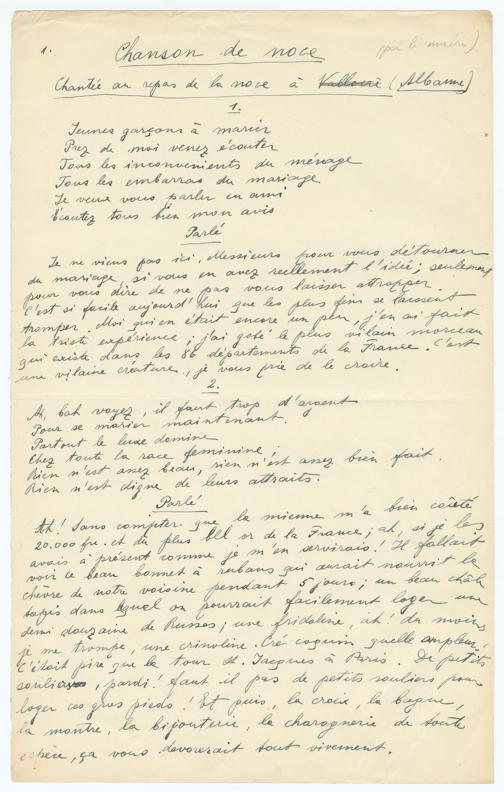 1. Chanson de noce (par le maire)
Chantée au repas de la noce à Valloire (Albanne)
1.
Jeunes garçons à marier
Prez de moi venez écouter
Tous les inconvenients du ménage
Tous les embarras du mariage
Je veux vous parler en ami
Ecoutez tous bien mon avis
Parlé
Je ne viens pas ici, Messieurs pour vous détourner
du mariage, si vous en avez reellement l'idée; seulement
pour vous dire de ne pas vous laisser attrapper.
C'est si facile aujourd'hui que les plus fins se laissent
tromper. Moi qui en était encore un peu, j'en ai fait
la triste expérience; j'ai goté le plus vilain morceau
qui existe dans les 86 départements de la France. C'est
une vilaine créature, je vous prie de le croire.
2.
Ah, bah voyez, il faut trop d'argent
Pour se marier maintenant.
Partout le luxe domine
Chez toute la race feminine.
Rien n'est assez beau, rien n'est assez bien fait.
Rien n'est digne de leurs attraits.
Parlé
Ah! Sans compter que la mienne m'a bien coûté
20.000 frs. et du plus bel or de la France; ah, si je les
avais à présent comme je m'en servirais! Il fallait
voir ce beau bonnet à rubans qui aurait nourrit la
chèvre de notre voisine pendant 5 jours; un beau châle
tapis dans lequel on pourrait facilement loger une
demi douzaine de Russes; une fridoline, ah! du moins
je me trompe, une crinoline. Cré coquin quelle ampleur!
C'était pire que la tour St. Jacques à Paris. De petits
souliers, pardi! faut il pas de petits souliers pour
loger ces gros pieds! Et puis, la croix, la bague,
la montre, la bijouterie, la charognerie de toute
espèce, ça vous devorerait tout vivement.